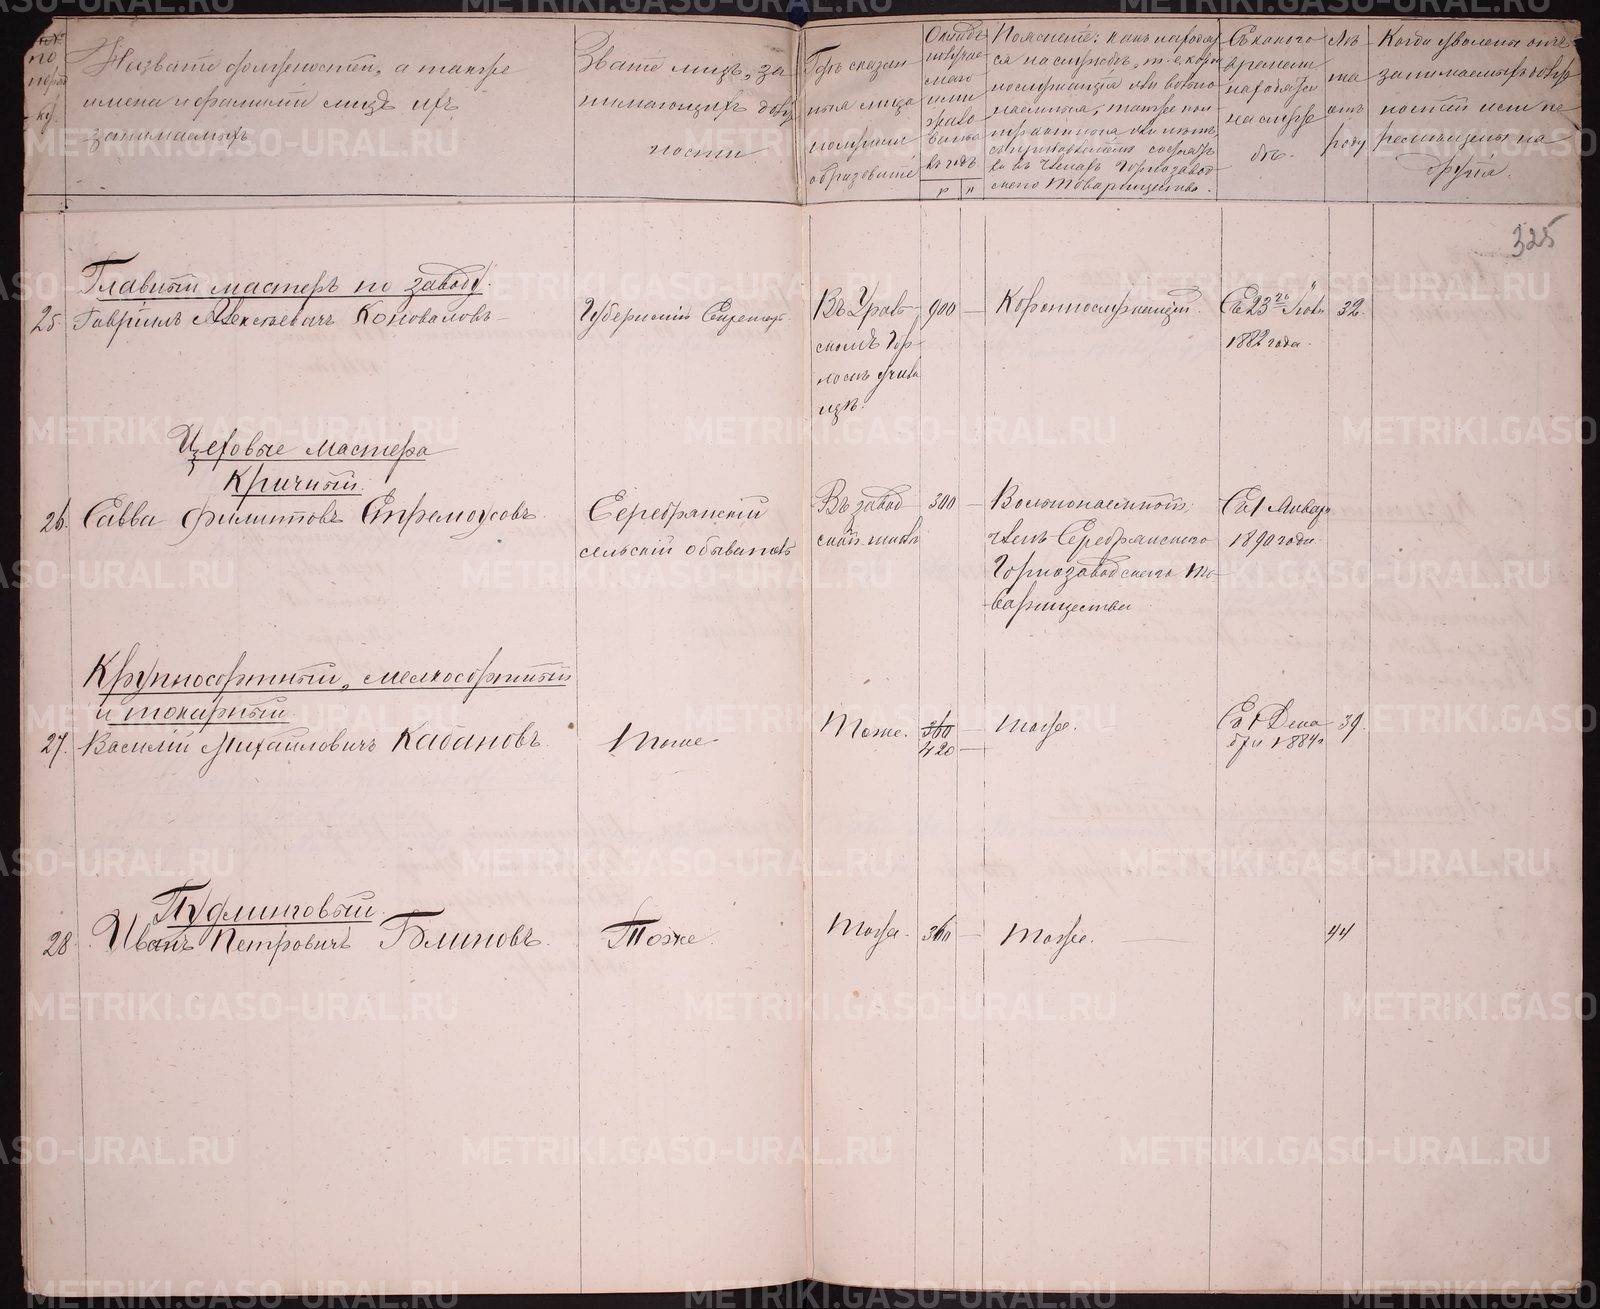 №№
по
поряд
ку.
Названiе должностей, а также
имена и фамилiи лицъ ихъ
занимаемыхъ
Званiе лицъ, за
нимающихъ долж
ности
Гдѣ сказан
ныя лица
получили
образованiе
Окладъ
получае
маго
ими
жало
ванья
въ годъ
р
к
Поясненiе: какъ находят
ся на службѣ, т. е. корон
нослужащiя или вольно
наемныя, также кои
изъ нихъ
состоятъ
въ членахъ Горнозавод
скаго Товарищества.
Съ какого
времени
находятся
на служ
бѣ.
Лѣ
та
отъ
роду
Когда уволены отъ
занимаемыхъ долж
ностей или пе
ремѣщены на
другiя.
325
Главный мастеръ по заводу.
25. Гаврiилъ Алексѣевичъ Коноваловъ
Губернскiй Секретарь.
Въ Ураль
скомъ Гор
номъ учили
щѣ.
900 —
Короннослужащiй.
Съ 23го Iюня
1882 года.
32.
Цеховые мастера
Кричный.
26. Савва Филиповъ
Серебрянскiй
сельскiй обыватель
Въ завод
ской школѣ
300 —
Вольнонаемный;
членъ Серебрянскаго
Горнозаводскаго То-
варищества
Съ 1 Января
1890 года.
Крупносортный, мелкосортный
и токарный.
27. Василiй Михайловичъ Кабановъ.
Тоже
Тоже.
360
420 —
Тоже.
Съ 1 Дека
бря 1884 г.
39.
Пудлинговый.
28. Иванъ Петровичъ Блиновъ.
Тоже.
Тоже.
360 —
Тоже.
44
METRIKI.GASO-URAL.RU